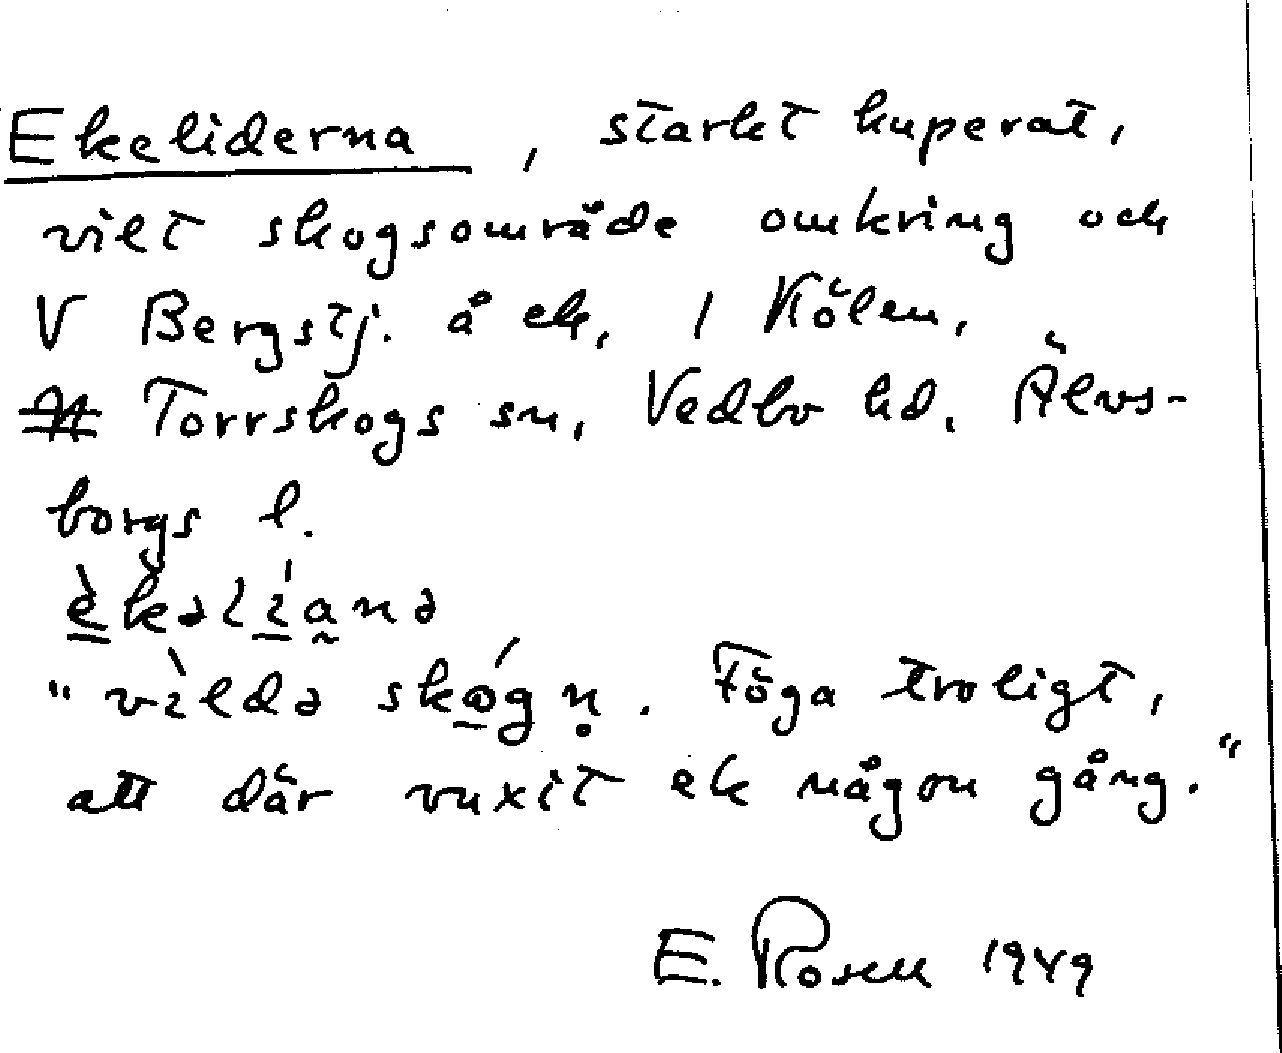 Ekeliderna, starkt kuperat,
vilt skogsområde omkring och
V Bergstj. å ek, 1 Kölen,
Torrskogs sn, Vedbo hd. Älvs-
borgs l.
èkəlíanə
"vìldə skógṇ. Föga troligt,
att där vuxit ek någon gång."
E. Rosell 1949